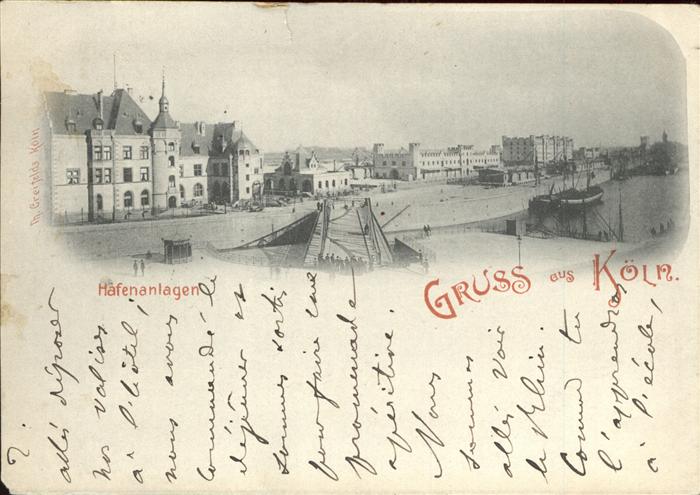 Th. Greifelds Köln
Hafenanlagen
GRUSS aus KÖLN.
déposer
nos valises
à l'hôtel,
nous avons
commandé le
déjeuner et
sommes sortis
pour faire une
promenade
apéritive.
Nous
sommes
allés voir
le Rhin.
Comme tu
l'apprendras
à l'école,